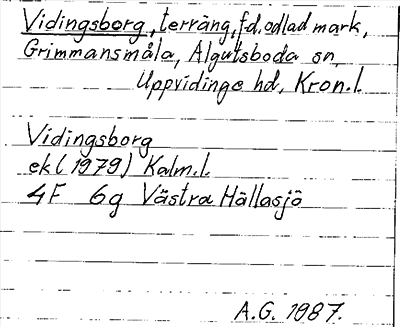 Vidingsborg, terräng, f.d. odlad mark,
Grimmansmåla, Algutsboda sn,
Uppvidinge hd, Kron.l.
Vidingsborg
ek l (1979) Kalm.l.
4F 6g Västra Hällasjö
A.G. 1987.